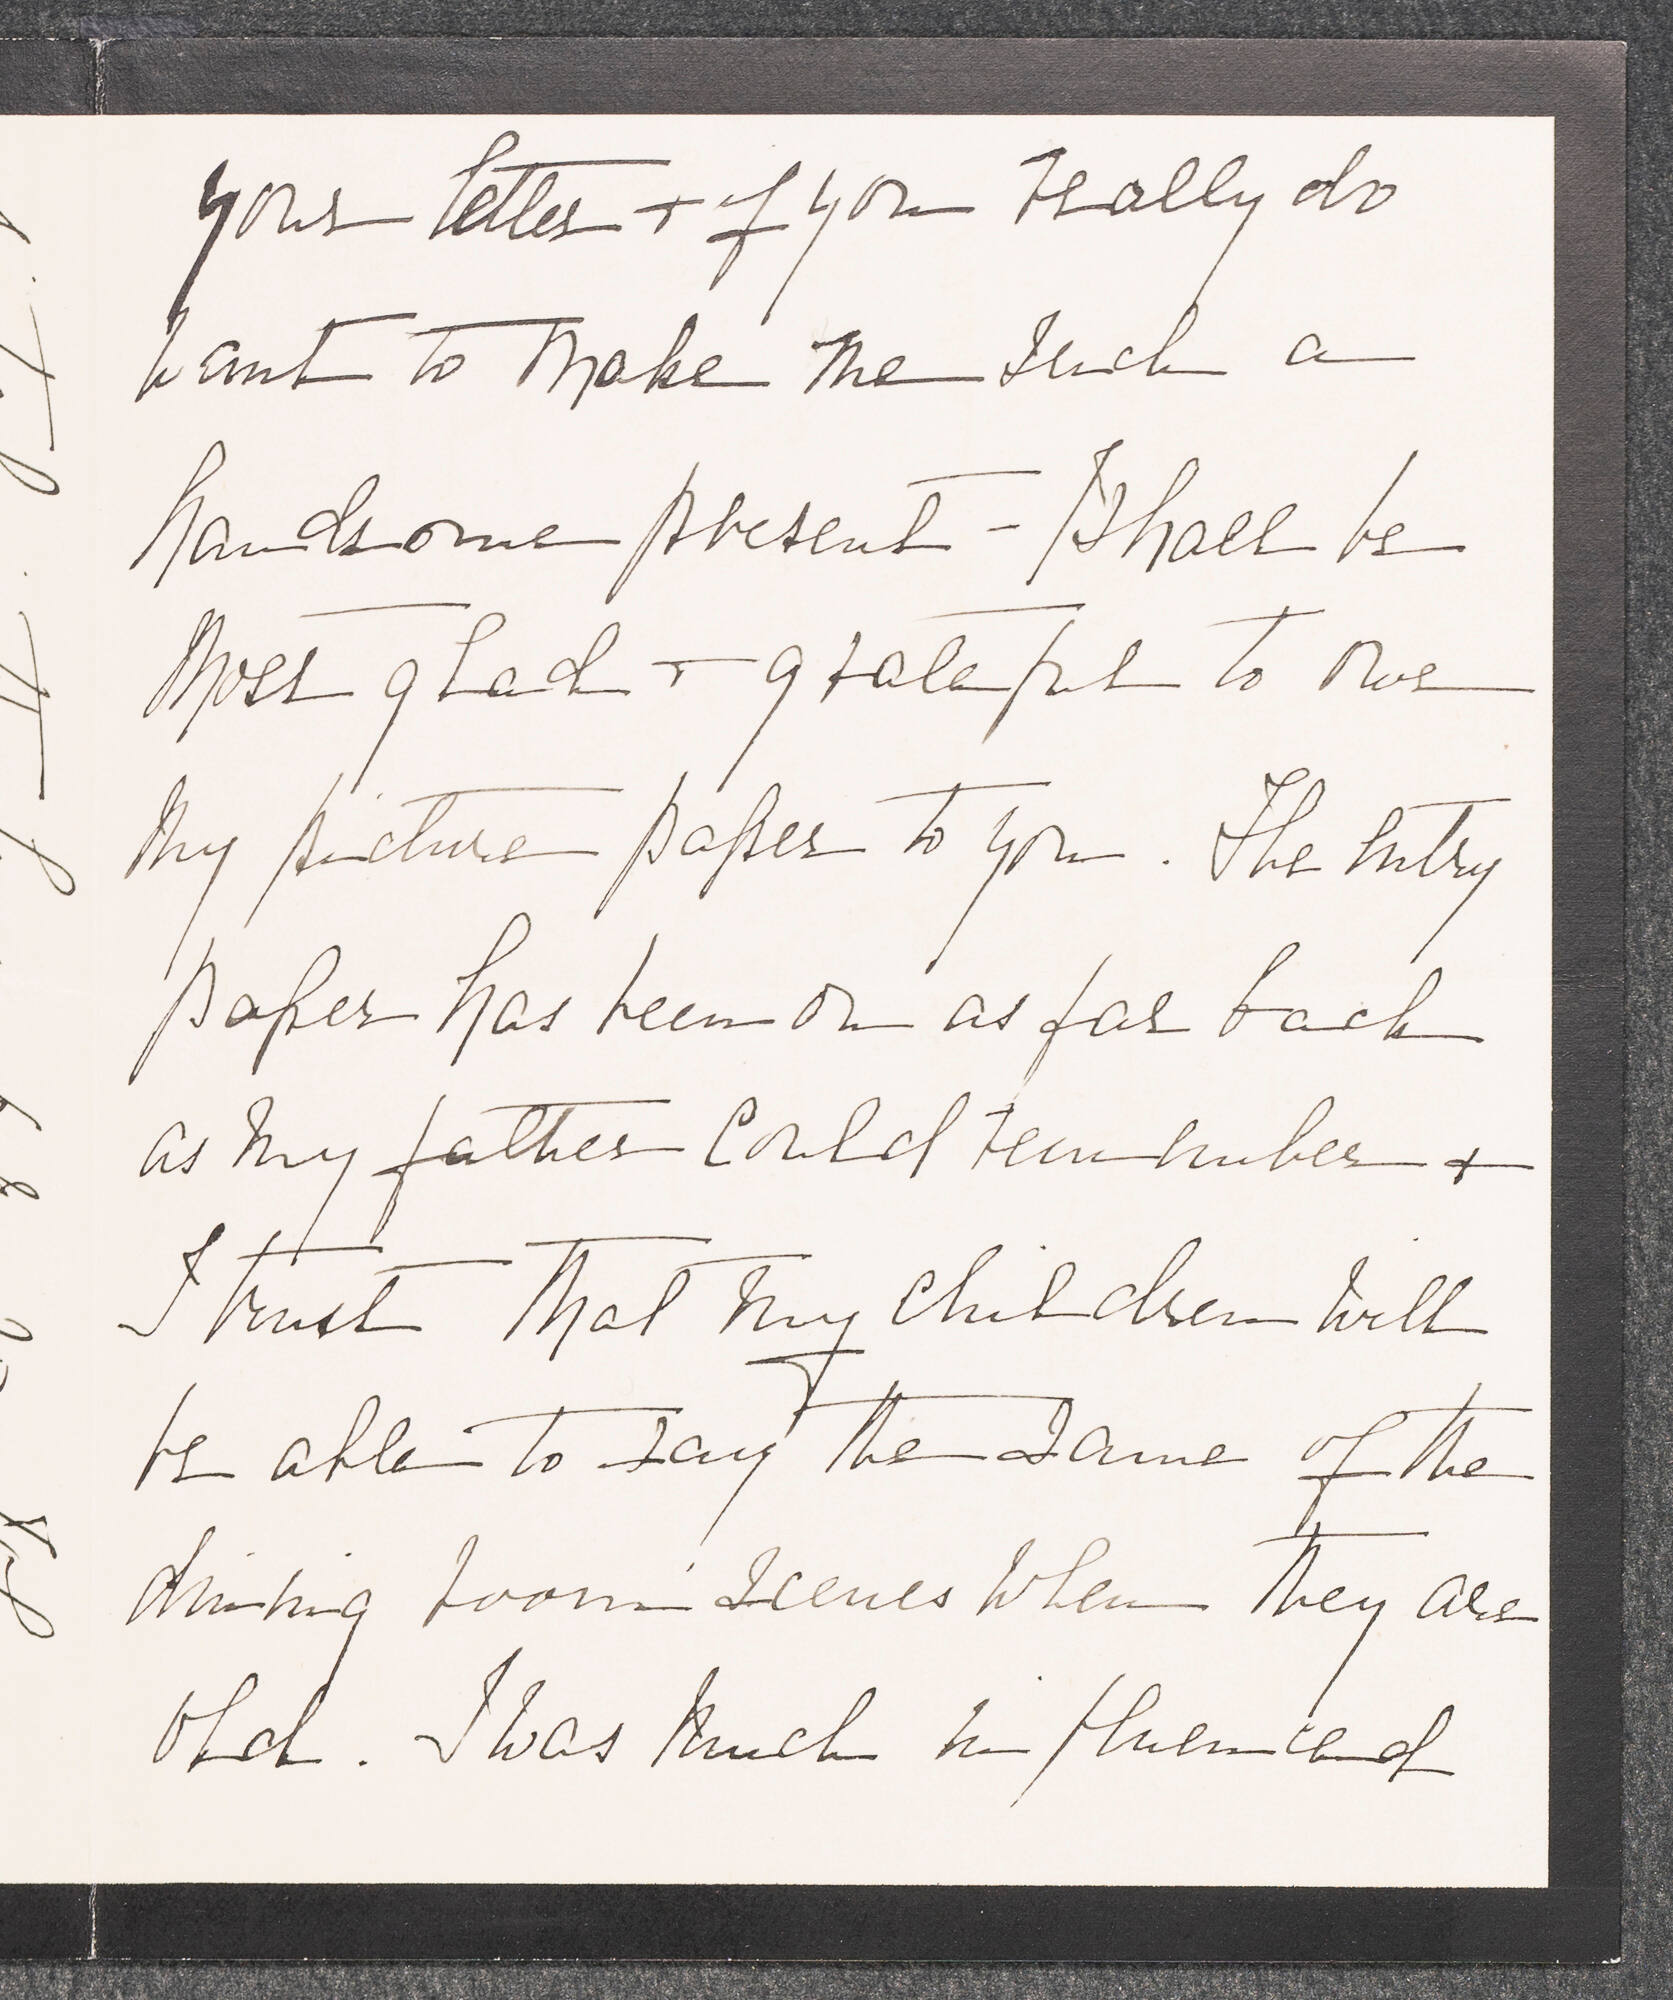 your letter + if you really do
want to make me such a
handsome present - I shall be
most glad + grateful to owe
my picture paper to you. The entry
paper has been on as far back
as my father could remember +
I trust that my children will
be able to say the same of the
dining room scenes when they are
old. I was much influenced